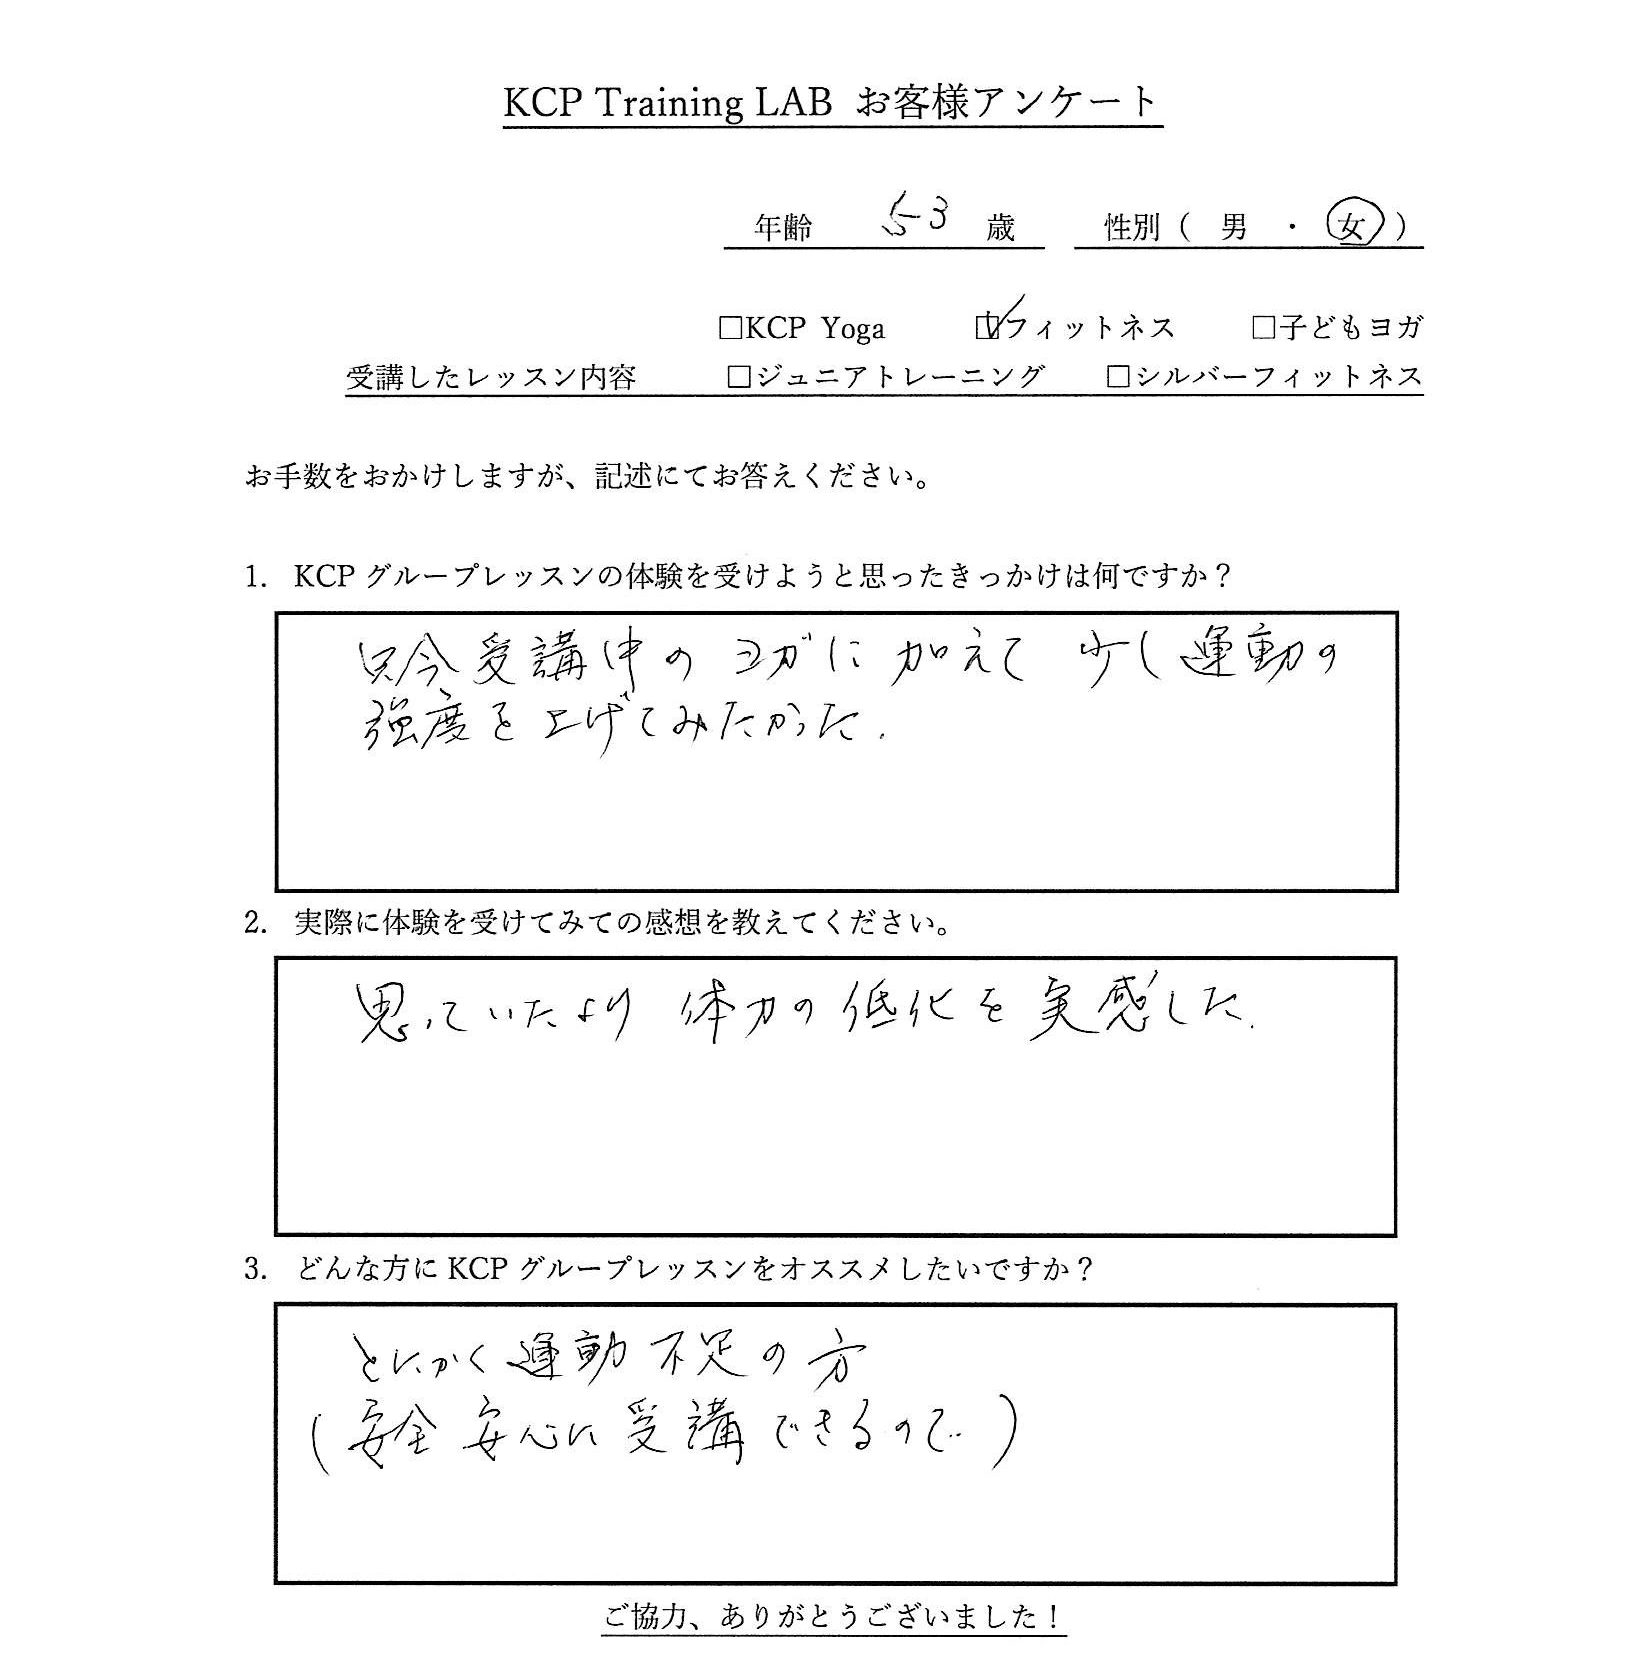 KCP Training LAB お客様アンケート
年齢 53 歳 性別（ 男 ・ 女 ）
□KCP Yoga ☑フィットネス □子どもヨガ
受講したレッスン内容 □ジュニアトレーニング □シルバーフィットネス
お手数をおかけしますが、記述にてお答えください。
1. KCP グループレッスンの体験を受けようと思ったきっかけは何ですか？
只今受講中の ヨガに 加えて 少し運動の
強度を上げてみたかった.
2. 実際に体験を受けてみての感想を教えてください。
思っていたより 体力の低化を実感した.
3. どんな方に KCP グループレッスンをオススメしたいですか？
とにかく運動不足の方
(安全 安心に 受講できるので..)
ご協力、ありがとうございました！